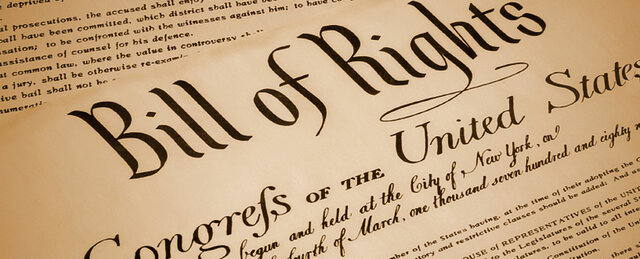 be deprived of
prosecutions, the accused shall enjoy
shall have been committed, which district shall have been
to be confronted with the witnesses against him; to have com
assistance of counsel for his defence.
at common law, where the value in controversy shall
a jury, shall be otherwise re-exami
bail shall not be
Bill of Rights
Congreſs OF THE United States
begun and held at the City of New York, on
fourth of March, one thousand seven hundred and eighty n
of the States having, at the time of their adopting the
and restrictive clauses should be added: And as
HOUSE OF REPRESENTATIVES of the UNI
to the Legislatures of the several S
to be valid to all inte
Constitution of the